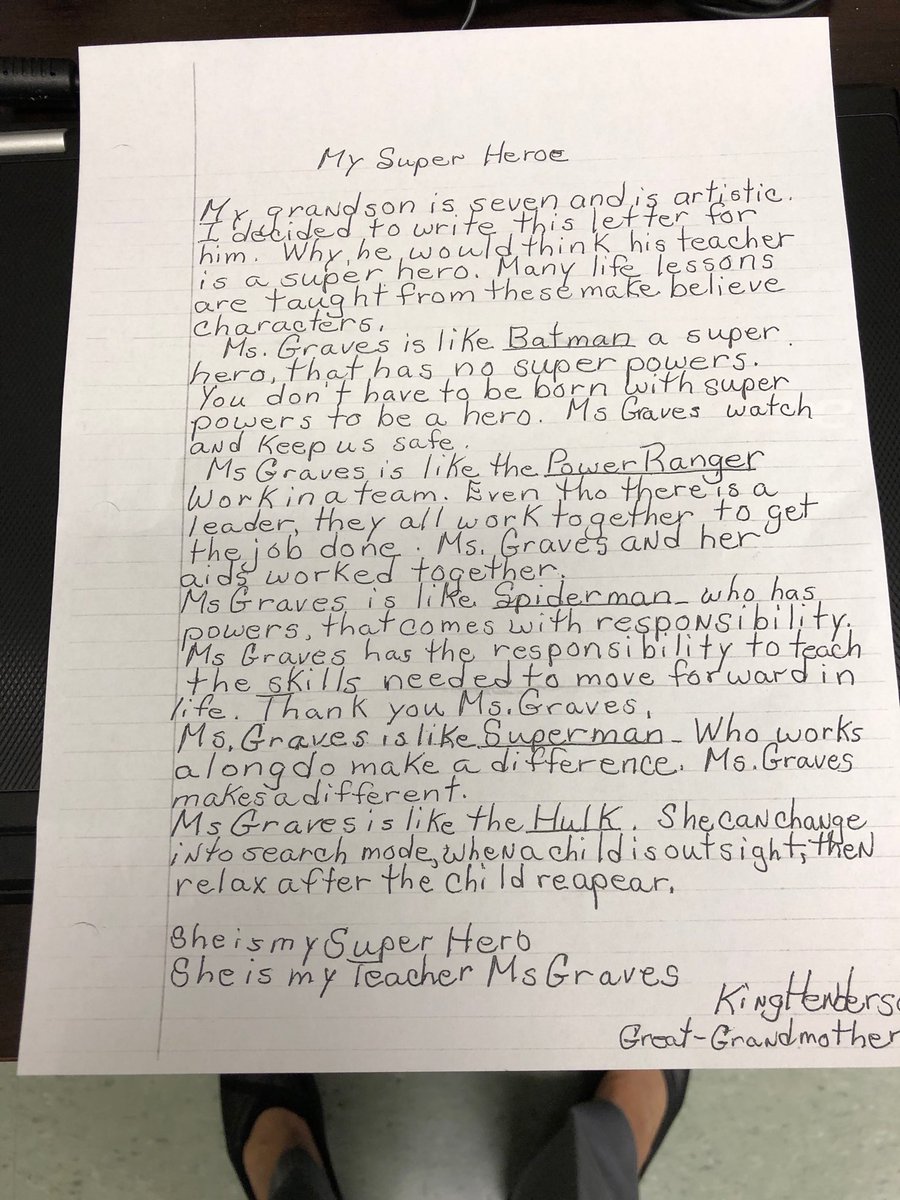 My Super Heroe
My grandson is seven and is artistic.
I decided to write this letter for
him. Why, he would think his teacher
is a super hero. Many life lessons
are taught from these make believe
characters.
Ms. Graves is like Batman a super
hero, that has no super powers.
You don't have to be born with super
powers to be a hero. Ms Graves watch
and Keep us safe.
Ms Graves is like the Power Ranger
Work in a team. Even tho there is a
leader, they all work together to get
the job done. Ms. Graves and her
aids worked together.
Ms Graves is like Spiderman who has
powers, that comes with responsibility.
Ms Graves has the responsibility to teach
the skills needed to move forward in
life. Thank you Ms. Graves.
Ms. Graves is like Superman Who works
along do make a difference. Ms. Graves
makes a different.
Ms Graves is like the Hulk. She can change
into search mode, when a child is out sight, then
relax after the child reapear.
She is my Super Hero
She is my Teacher Ms Graves
King
Great-Grandmother